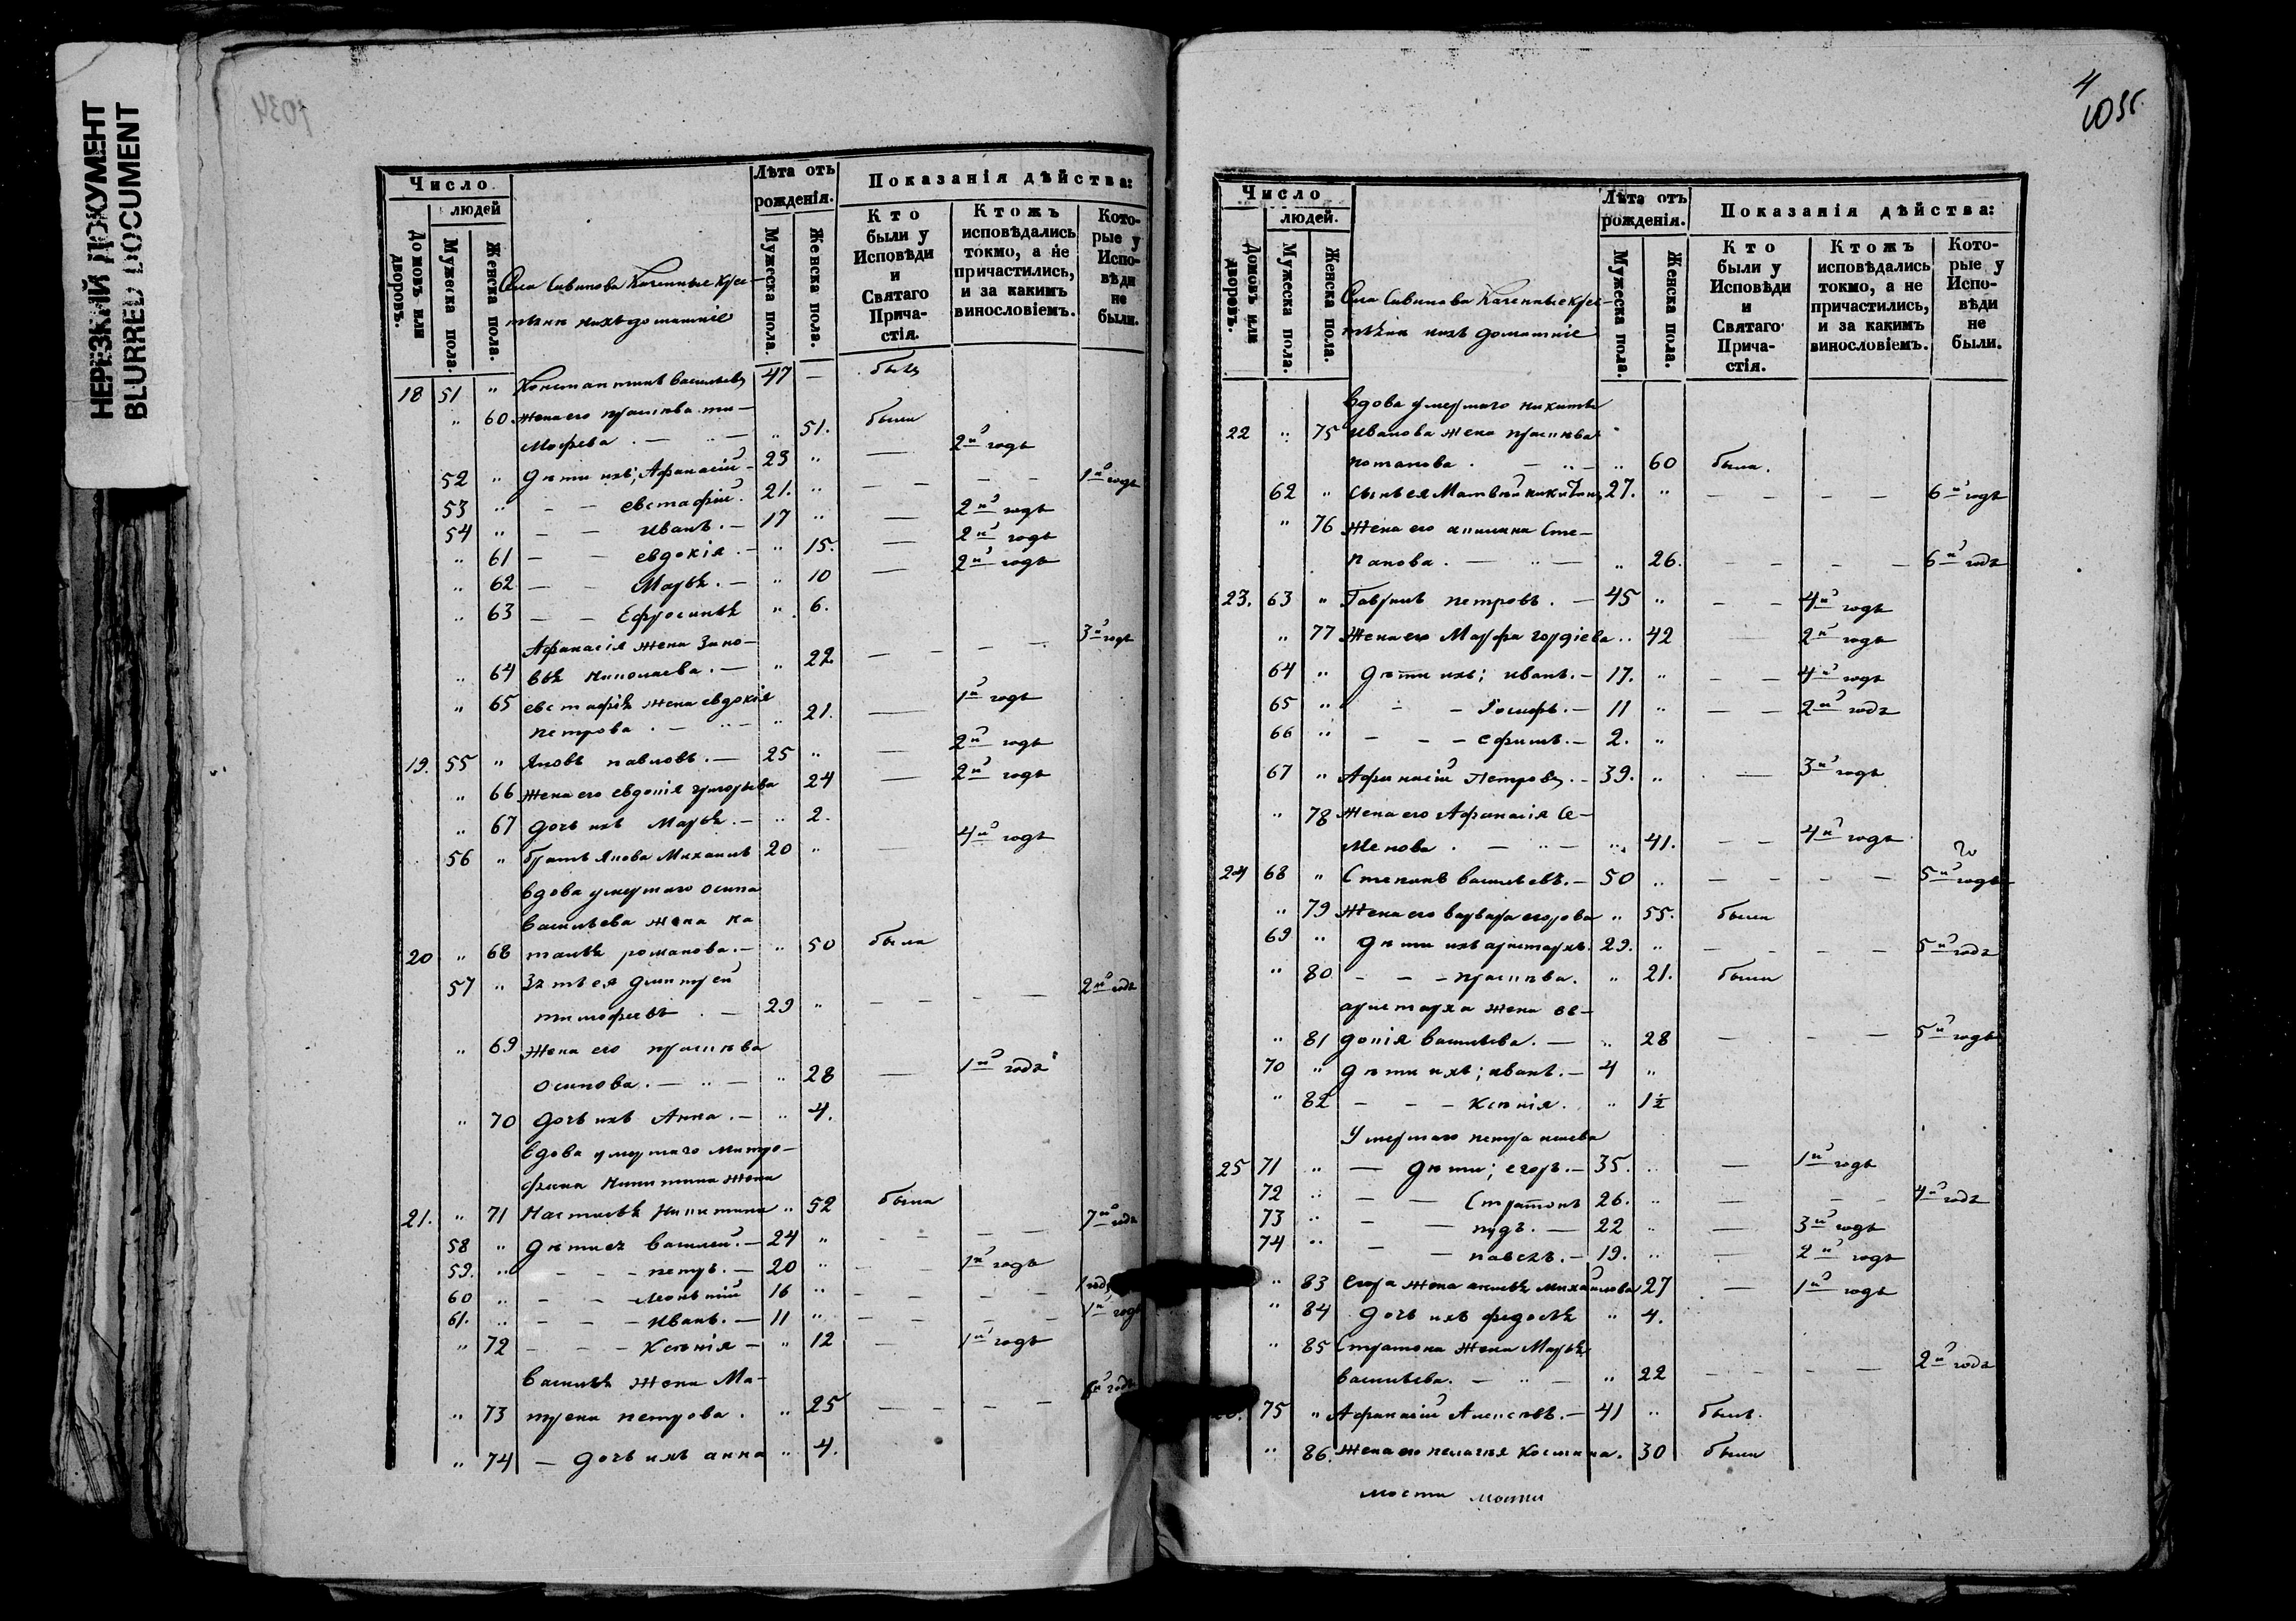 НЕРЕЗКИЙ ДОКУМЕНТ
BLURRED DOCUMENT
1034
Число
людей
Домовъ или дворовъ.
Мужеска пола.
Женска пола.
Села Савинова Казенные крес-
тьяне ихъ домашніе
Лѣта отъ рожденія.
Мужеска пола.
Женска пола.
Показанія дѣйства:
Кто были у Исповѣди и Святаго Причастія.
Ктожъ исповѣдались токмо, а не причастились, и за какимъ винословіемъ.
Которые у Исповѣди не были.
18 51 " Константинъ Васильевъ 47 — былъ
" 60 жена его прасковья ти-
мофеева . — " — " 51. была
52 " дѣти ихъ; Афанасій — 23 " — 2й годъ
53 " — — евстафій. 21. " — — — — 1й годъ
54 " — — иванъ. — 17 " — 2й годъ
" 61 — — евдокія . — " 15. — 2й годъ
" 62 — — Марья. — " 10 — 2й годъ
" 63 — — Ефросинья " 6.
Афанасія жена Зино-
" 64 вья николаева. — " 22 — — — — 3й годъ
" 65 евстафія жена евдокія
петрова . — " — " 21. — 1й годъ
19. 55 " Яковъ павловъ. — 25 " — 2й годъ
" 66 жена его евдокія григорьева 24 — 2й годъ
" 67 дочь ихъ Марья. — " 2.
56 " братъ Якова Михаилъ 20 " — 4й годъ
вдова умершаго осипа
васильева жена на
20 " 68 талья романова. — " 50 была
57 " Зять ея дмитрей
тимофеевъ . — 29 " — — — — 2й годъ
" 69 жена его прасковья
осипова. — " — " 28 — 1й годъ
" 70 дочь ихъ Анна. — " 4.
вдова умершаго митро-
фана никитина жена
21. " 71 Настасья никитина " 52 была
58 " дѣти ея василій. — 24 " — — — — 7й годъ
59. " — — — петръ. — 20 " — 1й годъ
60 " — — леонтій 16 " — — — — 1 годъ
61. " — — — иванъ. — 11 " — — — — 1й годъ
" 72 — — — Ксенія — " 12 — 1й годъ
василья жена Ма-
" 73 трена петрова . " 25 — — — — 6й годъ
" 74 — дочь ихъ анна " 4.
4
1035.
Число
людей.
Домовъ или дворовъ.
Мужеска пола.
Женска пола.
Села Савинова Казенные крес-
тьяне ихъ домашніе
Лѣта отъ рожденія.
Мужеска пола.
Женска пола.
Показанія дѣйства:
Кто были у Исповѣди и Святаго Причастія.
Ктожъ исповѣдались токмо, а не причастились, и за какимъ винословіемъ.
Которые у Исповѣди не были.
вдова умершаго никиты
22 " 75 иванова жена прасковья
потапова . — " — " 60 была.
62 " сынъ ея Матвѣй никитинъ 27. " — — — — 6й годъ
" 76 жена его акилина Сте-
панова . — " — " 26. — — — — 6й годъ
23. 63 " Гаврилъ петровъ . — 45 " — — 4й годъ
" 77 жена его Марфа гордіева " 42 — 2й годъ
64 " дѣти ихъ; иванъ. — 17. " — — 4й годъ
65 " — — Іосифъ. — 11 " — — 2й годъ
66 " — — — ефимъ. — 2. "
67 " Афанасій Петровъ . — 39. " — 3й годъ
" 78 жена его Афанасія Се-
менова . — " — " 41. — — 4й годъ
24 68 " Степанъ васильевъ. — 50 " — — — — 5й годъ
" 79 жена его варвара егорова " 55. была
69 " дѣти ихъ аристархъ. 29. " — — — — 5й годъ
" 80 — — — прасковья. " 21. была
аристарха жена ев-
" 81 докія васильева. — " 28 — — — 5й годъ
70 " дѣти ихъ; иванъ. — 4 "
" 82 — — — Ксенія. " 1½
Умершаго петра
25 71 " — дѣти; егоръ. — 35. " — 1й годъ
72 " — — Стратонъ 26. " — — — 4й годъ
73 " — — пудъ. — 22 " — 3й годъ
74 " — — павелъ. — 19. " — 2й годъ
" 83 егора жена михайлова 27 — 1й годъ
" 84 дочь ихъ федосья " 4.
" 85 Стратона жена Марья
васильева. — " — " 22 — — — — 2й годъ
75 " Афанасій Алексѣевъ. — 41 " былъ.
" 86. жена его пелагея . 30 была